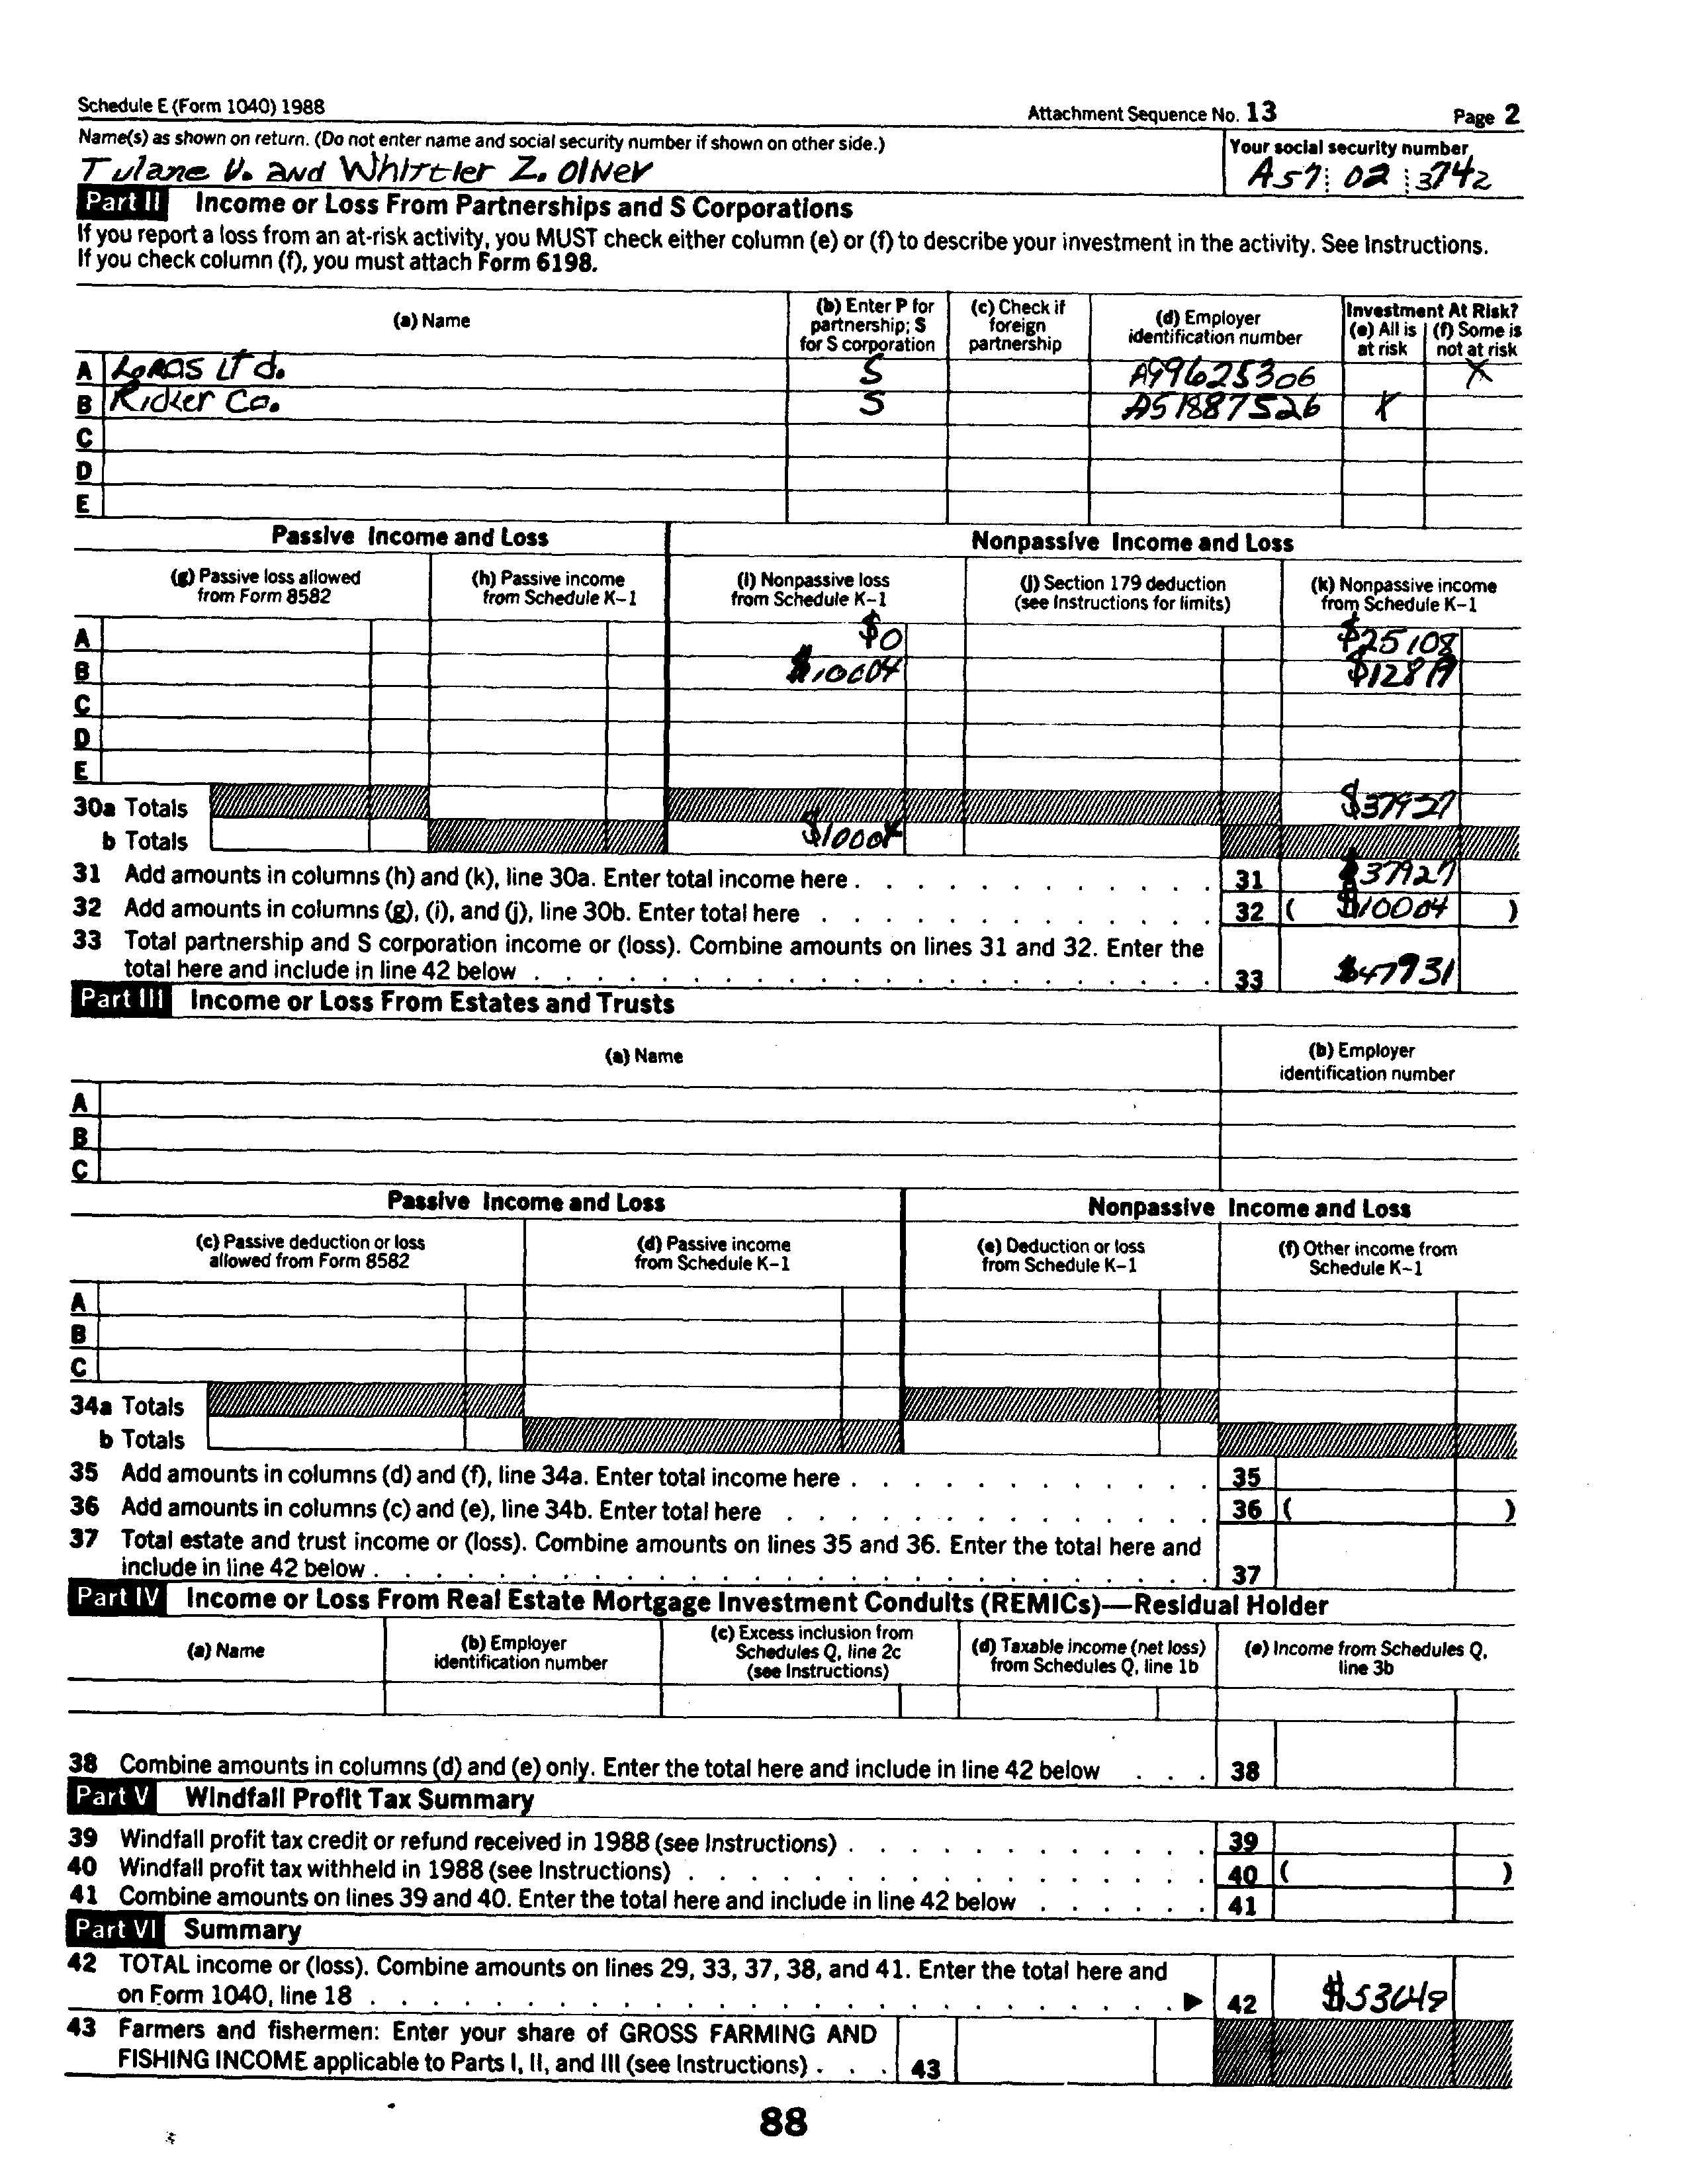 Schedule E (Form 1040) 1988 Attachment Sequence No. 13 Page 2
Name(s) as shown on return. (Do not enter name and social security number if shown on other side.) Your social security number
Tulane V. and Whittier Z. Oliver A57 02 3742
Part II Income or Loss From Partnerships and S Corporations
If you report a loss from an at-risk activity, you MUST check either column (e) or (f) to describe your investment in the activity. See Instructions.
If you check column (f), you must attach Form 6198.
(a) Name (b) Enter P for partnership; S for S corporation (c) Check if foreign partnership (d) Employer identification number Investment At Risk? (e) All is at risk (f) Some is not at risk
A Loras Ltd. S A99625306 X
B Ricker Co. S A51887526 X
C
D
E
Passive Income and Loss Nonpassive Income and Loss
(g) Passive loss allowed from Form 8582 (h) Passive income from Schedule K-1 (i) Nonpassive loss from Schedule K-1 (j) Section 179 deduction (see Instructions for limits) (k) Nonpassive income from Schedule K-1
A $0 $25108
B $10004 $12819
C
D
E
30a Totals $37927
b Totals $10004
31 Add amounts in columns (h) and (k), line 30a. Enter total income here 31 $37927
32 Add amounts in columns (g), (i), and (j), line 30b. Enter total here 32 ( $10004 )
33 Total partnership and S corporation income or (loss). Combine amounts on lines 31 and 32. Enter the
total here and include in line 42 below 33 $47931
Part III Income or Loss From Estates and Trusts
(a) Name (b) Employer identification number
A
B
C
Passive Income and Loss Nonpassive Income and Loss
(c) Passive deduction or loss allowed from Form 8582 (d) Passive income from Schedule K-1 (e) Deduction or loss from Schedule K-1 (f) Other income from Schedule K-1
A
B
C
34a Totals
b Totals
35 Add amounts in columns (d) and (f), line 34a. Enter total income here 35
36 Add amounts in columns (c) and (e), line 34b. Enter total here 36 ( )
37 Total estate and trust income or (loss). Combine amounts on lines 35 and 36. Enter the total here and
include in line 42 below 37
Part IV Income or Loss From Real Estate Mortgage Investment Conduits (REMICs)—Residual Holder
(a) Name (b) Employer identification number (c) Excess inclusion from Schedules Q, line 2c (see Instructions) (d) Taxable income (net loss) from Schedules Q, line 1b (e) Income from Schedules Q, line 3b
38 Combine amounts in columns (d) and (e) only. Enter the total here and include in line 42 below 38
Part V Windfall Profit Tax Summary
39 Windfall profit tax credit or refund received in 1988 (see Instructions) 39
40 Windfall profit tax withheld in 1988 (see Instructions) 40 ( )
41 Combine amounts on lines 39 and 40. Enter the total here and include in line 42 below 41
Part VI Summary
42 TOTAL income or (loss). Combine amounts on lines 29, 33, 37, 38, and 41. Enter the total here and
on Form 1040, line 18 42 $53649
43 Farmers and fishermen: Enter your share of GROSS FARMING AND
FISHING INCOME applicable to Parts I, II, and III (see Instructions) 43
88